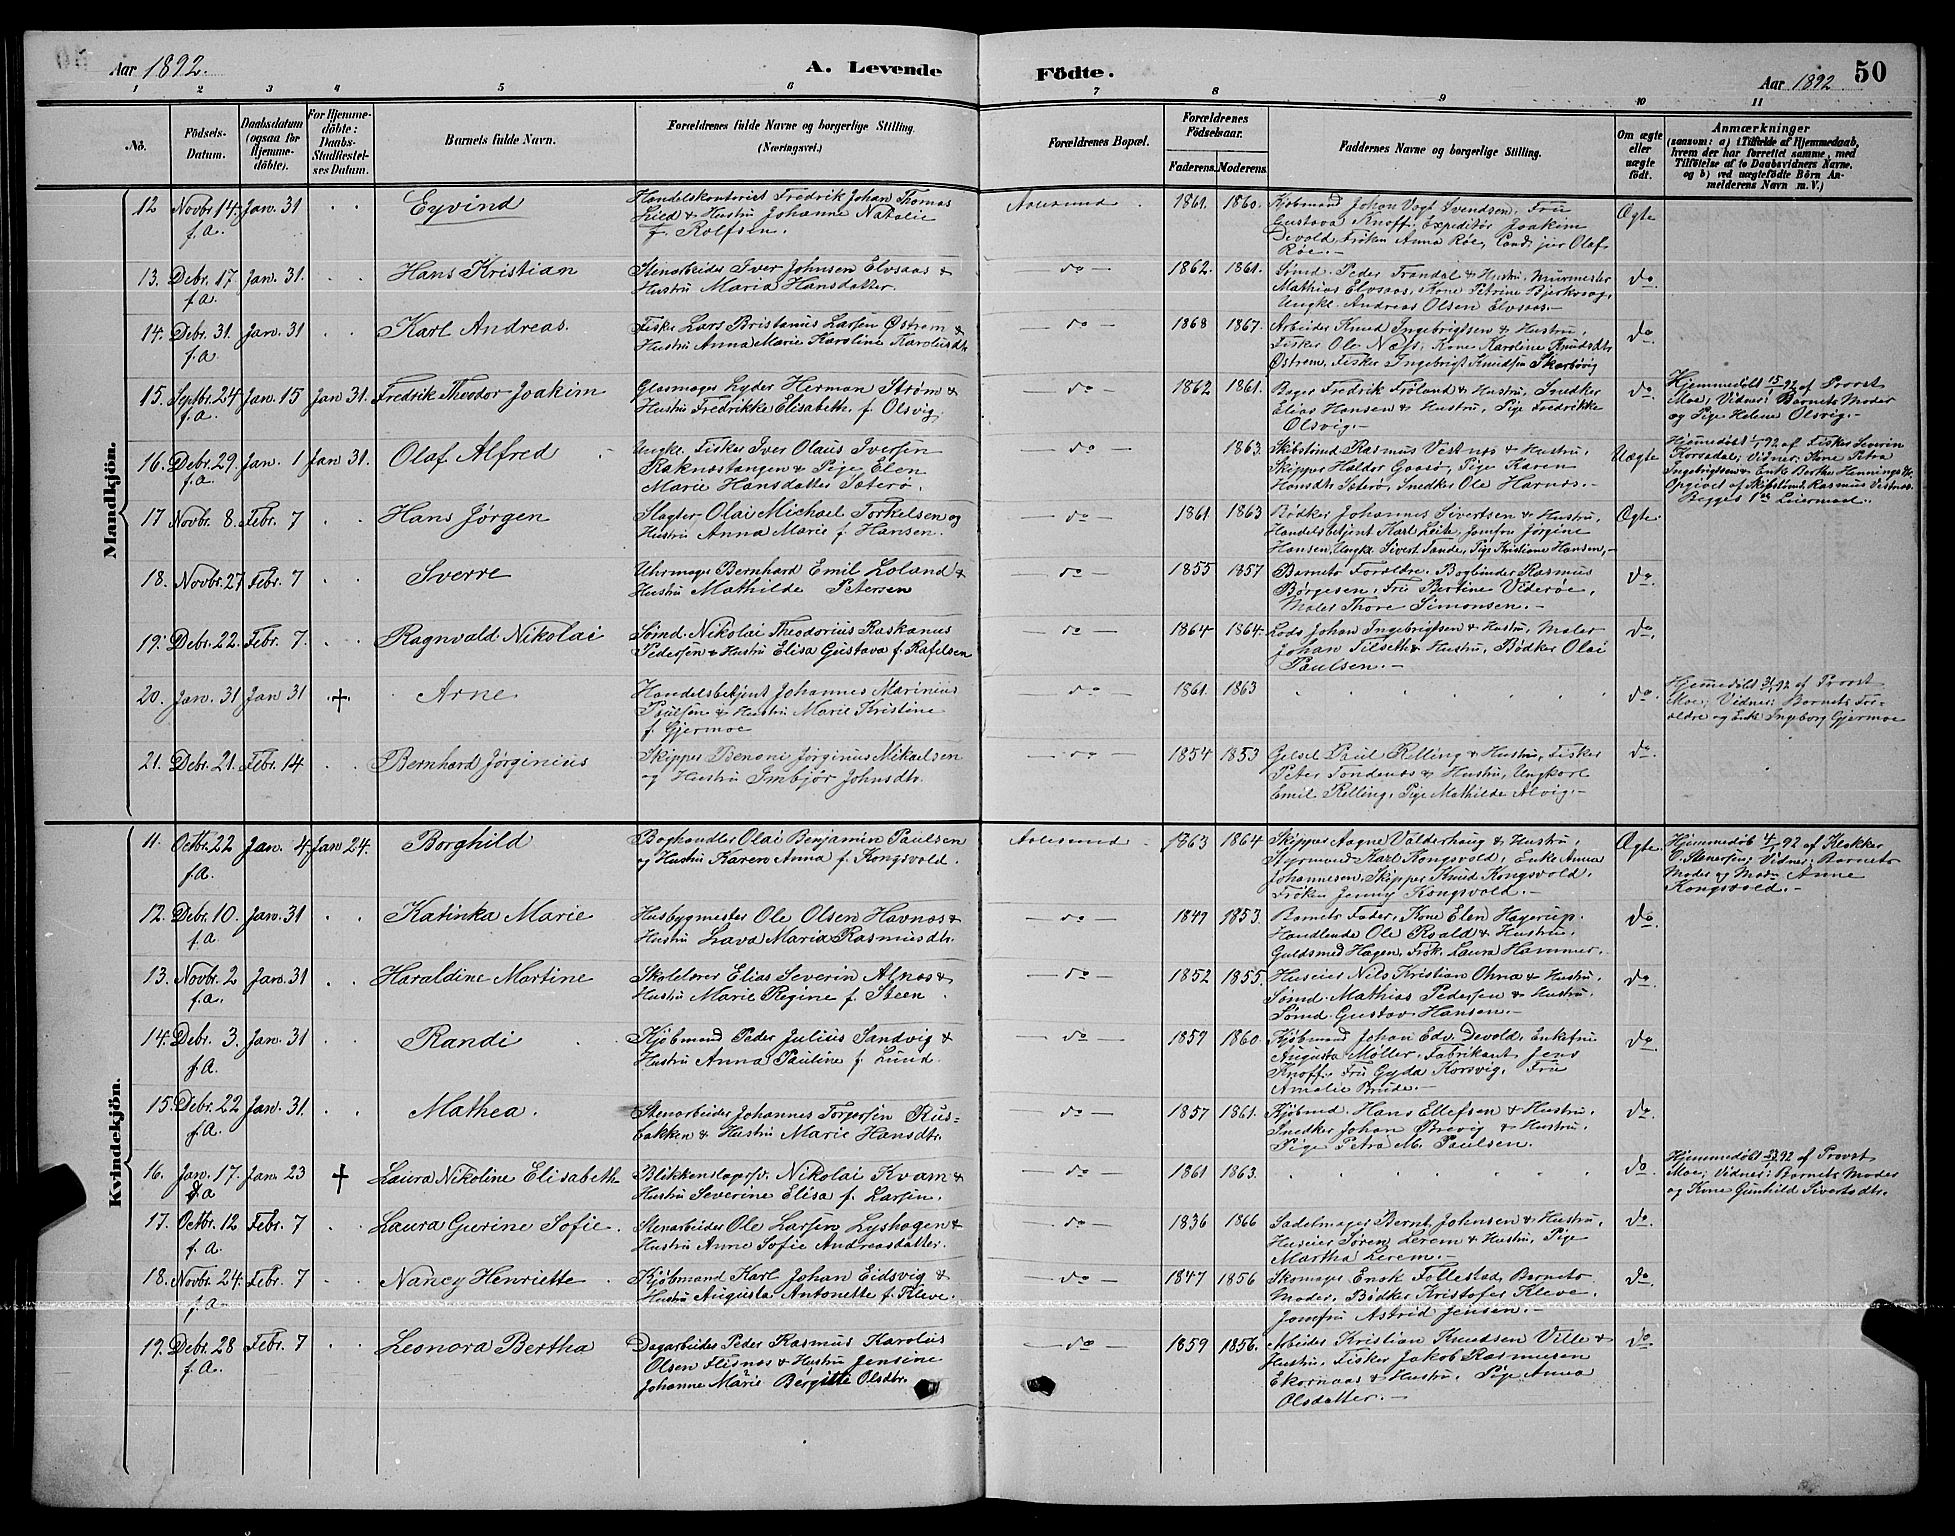 Aar 1892.
A. Levende
Födte.
Aar 1892
50
1 2 3 4 5 6 7 8 9 10 11
No.
Födsels-Datum.
Daabsdatum (ogsaa for Hjemme-döbte).
For Hjemme-döbte: Daabs-Stadfæstelses Datum.
Barnets fulde Navn.
Forældrenes fulde Navne og borgerlige Stilling. (Næringsvei.)
Forældrenes Bopæl.
Forældrenes Födselsaar.
Faderens. Moderens.
Faddernes Navne og borgerlige Stilling.
Om ægte eller uægte födt.
Anmærkninger
(saasom: a) i Tilfælde af Hjemmedaab, hvem der har forrettet samme, med Tilföielse af to Daabsvidners Navne. og b) ved uægtefödte Börn Anmelderens Navn m. V.)
Mandkjön.
12 Novbr 14. f.a. Jan. 31 Eyvind
Handelskontorist Fredrik Johan Thomas
Lild & Hustru Johanne Natalie
f. Rolfsen.
Aalesund. 1861. 1860.
Kjøbmand Johan Vogt Svendsen, Fru
Gustava Knoff, Expeditør Joakim
Devold, Frøken Anna Røe, Cand. jur Olaf
Røe.—
Ægte
13. Debr. 17 f.a. Jan. 31. Hans Kristian
Stenarbeider Iver Johnsen Elvsaas &
Hustru Maria Hansdatter.
do 1862. 1861.
Sømd. Peder Frandal & Hustru, Murmester
Mathias Elvsaas, Kone Petrine Bjerkevog,
Ungk. Andreas Olsen Elvsaas.—
do
14. Debr. 31. f.a. Jan. 31 Karl Andreas.
Fisker Lars Bristanus Larsen Østrem &
Hustru Anna Marie Karoline Karolusdtr
do 1868 1867.
Arbeider Knud Ingebrigtsen & Hustru,
Fisker Ole Næss, Kone Karoline Knudsdtr
Østrem, Fisker Ingebrigt Knudsen Skarbøvig
do
15. Septbr. 24 f.a. Jan. 15 Jan 31. Fredrik Theodor Joakim
Glasmager Lyder Herman Strøm &
Hustru Fredrikke Elisabeth f. Olsvig.
do 1862 1861.
Bager Fredrik Frøland & Hustru, Snedker
Elias Hansen & Hustru, Pige Fredrikke
Olsvig.—
do
Hjemmedøbt 15/1 92 af Provst
Moe; Vidner: Barnets Moder
og Pige Helene Olsvig.—
16. Debr. 29. f.a. Jan. 1 Jan 31. Olaf Alfred
Ungk. Fisker Iver Olaus Iversen
Raknestangen & Pige Elen
Marie Hansdatter Sæterø.
do 1863.
Skibstømd Rasmus Vestnes & Hustru,
Skipper Haldor Gaasø, Pige Karen
Hansdtr Sæterø, Snedker Ole Harnes.—
Uægte
Hjemmedøbt 1/1 92 af Fisker Severin
Korsadal; Vidner: Kone Petra
Ingebrigtsen & Enke Berthe
Opgivet af Skibstømd. Rasmus Vestnes.
Begges 1ste Leiermaal.
17 Novbr. 8. Febr. 7 Hans Jørgen
Slagter Olai Michael Torkelsen og
Hustru Anna Marie f. Hansen.
do 1861 1863
Bødker Johannes Sivertsen & Hustru,
Handelsbetjent Karl Leite, Jomfru Jørgine
Hansen, Ungk. Sivert Tande, Pige Kristiane Hansen.—
Ægte
18. Novbr. 27. Febr. 7 Sverre
Uhrmager Bernhard Emil Loland &
Hustru Mathilde Petersen
do 1855 1857
Barnets Forældre, Bogbinder Rasmus
Børgesen, Fru Bertine Viderøe,
Maler Thore Simonsen.—
do
19. Debr. 22. Febr. 7. Ragnvald Nikolai
Sømd. Nikolai Theodorius Raskanus
Pedersen & Hustru Elisa Gustava f. Rafelsen
do 1864 1864.
Lods Johan Ingebrigtsen & Hustru, Maler
Johan Tilseth & Hustru, Bødker Olai
Paulsen.—
do
20. Jan. 31 Jan 31 + Arne
Handelsbetjent Johannes Marinius
Paulsen & Hustru Marie Kristine
f. Gjermoe
do 1861. 1863
do
Hjemmedøbt 31/1 92 af Provst
Moe; Vidner: Barnets For-
ældre og Enke Ingeborg Gjermoe
21. Debr. 21. Febr. 14 Bernhard Jørginius
Skipper Benoni Jørginus Mikaelsen
og Hustru Imbjør Johnsdtr.
do 1854 1853
Gelsel Paul Relling & Hustru, Fisker
Peter Tondenes & Hustru, Ungkarl
Emil Relling, Pige Mathilde Alvig.—
do
Kvindekjön.
11. Octbr. 22 f.a. Jan. 4. Jan 24. Borghild
Boghandler Olai Benjamin Paulsen
og Hustru Karen Anna f. Kongsvold.
Aalesund. 1863 1864
Skipper Aagne Valderhaug & Hustru,
Styrmand Karl Kongsvold, Enke Anna
Johannesen, Skipper Knud Kongsvold,
Frøken Jenny Kongsvold.—
Ægte.
Hjemmedøb 4/1 92 af Klokker
O. Stenersen; Vidner: Barnets
Moder og Madm Anne
Kongsvold.—
12. Debr. 10. f.a. Jan. 31 Katinka Marie
Husbygmester Ole Olsen Havnes &
Hustru Lava Maria Rasmusdtr.
do 1849 1853.
Barnets Fader, Kone Elen Hagerup,
Handlende Ole Roald & Hustru,
Guldsmed Hagen, Frøk. Laura Hammer.
do
13. Novbr. 2 f.a. Jan. 31 Haraldine Martine
Skolelærer Elias Severin Alnes &
Hustru Marie Regine f. Steen.
do 1852 1855.
Huseier Nils Kristian Ohna & Hustru,
Sømd. Mathias Pedersen & Hustru,
Sømd. Gustav Hansen.—
do
14. Debr. 3. f.a. Jan. 31 Randi
Kjøbmand Peder Julius Sandvig &
Hustru Anna Pauline f. Lund.
do 1859 1860.
Kjøbmand Johan Edv. Devold, Enkefru
Augusta Møller, Fabrikant Jens
Knoff, Fru Gyda Korsvig, Fru
Amalie Brude.—
do
15. Debr. 22 f.a. Jan. 31. Mathea.
Stenarbeider Johannes Torgersen Rus-
bakken & Hustru Marie Hansdtr.
do 1857 1861.
Kjøbmd. Hans Ellefsen & Hustru,
Snedker Johan Brevig & Hustru,
Pige Petra M. Paulsen.
do
16. Jan. 17. Jan. 23 + Laura Nikoline Elisabeth
Blikkenslagersv. Nikolai Kvam &
Hustru Severine Elisa f. Larsen.
do 1861 1863.
do
Hjemmedøbt 23/1 92 af Provst
Moe; Vidner: Barnets Moder
og Kone Gunhild Sivertsdtr.
17. Octbr. 12 f.a. Febr. 7 Laura Gurine Sofie.
Stenarbeider Ole Larsen Lyshagen &
Hustru Anne Sofie Andreasdatter.
do 1836 1866
Sadelmager Bernt Johnsen & Hustru,
Huseier Søren Lerem & Hustru, Pige
Martha Lerem.—
do
18. Novbr. 24. f.a. Febr. 7 Nancy Henriette.
Kjøbmand Karl Johan Eidsvig &
Hustru Augusta Antonette f. Kleve.
do 1847 1856
Skomager Enok Follestad, Barnets
Moder, Bødker Kristofer Kleve,
Jomfru Astrid Jensen.—
do
19. Debr. 28 f.a. Febr. 7 Leonora Bertha
Dagarbeider Peder Rasmus Karolus
Olsen Flisnes & Hustru Jensine
Johanne Marie Bergitte Olsdtr.
do 1859 1856.
Arbeider Kristian Knudsen Ville &
Hustru, Fisker Jakob Rasmussen
Ekornaas & Hustru, Pige Anna
Olsdatter.—
do